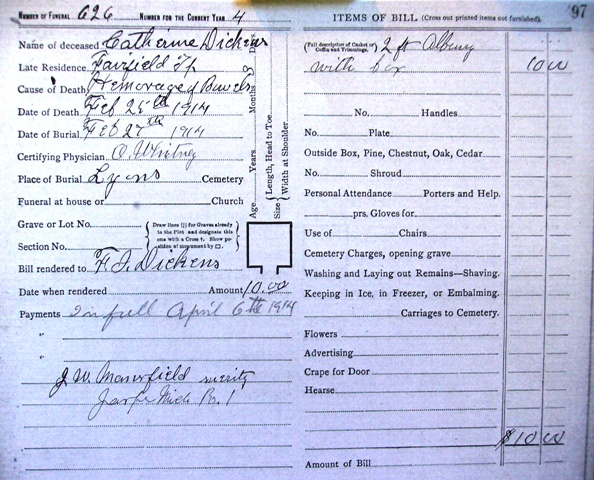 NUMBER OF FUNERAL 626 NUMBER FOR THE CURRENT YEAR 4
Name of deceased Catherine Dickens
Late Residence Fairfield Tp
Cause of Death Hemorage of Bowels
Date of Death Feb 25th 1914
Date of Burial Feb 27th 1914
Certifying Physician O. Whitney
Place of Burial Lyons Cemetery
Funeral at house or Church
Grave or Lot No.
Section No.
{Draw lines (|||) for Graves already in the Plot and designate this one with a Cross †. Show position of monument by □.}
Bill rendered to F. J. Dickens
Date when rendered Amount 10.00
Payments In full April 6th 1914
"
"
J. W. Manerfield
Mich
Age Years Months Days
Size { Length, Head to Toe.
Width at Shoulder
ITEMS OF BILL (Cross out printed items not furnished). 97
(Full description of Casket or Coffin and Trimmings. 2 ft Albany
with box 10 00
No. Handles
No. Plate
Outside Box, Pine, Chestnut, Oak, Cedar
No. Shroud
Personal Attendance Porters and Help.
prs. Gloves for
Use of Chairs
Cemetery Charges, opening grave
Washing and Laying out Remains—Shaving.
Keeping in Ice, in Freezer, or Embalming.
Carriages to Cemetery.
Flowers
Advertising
Crape for Door
Hearse
$10 00
Amount of Bill